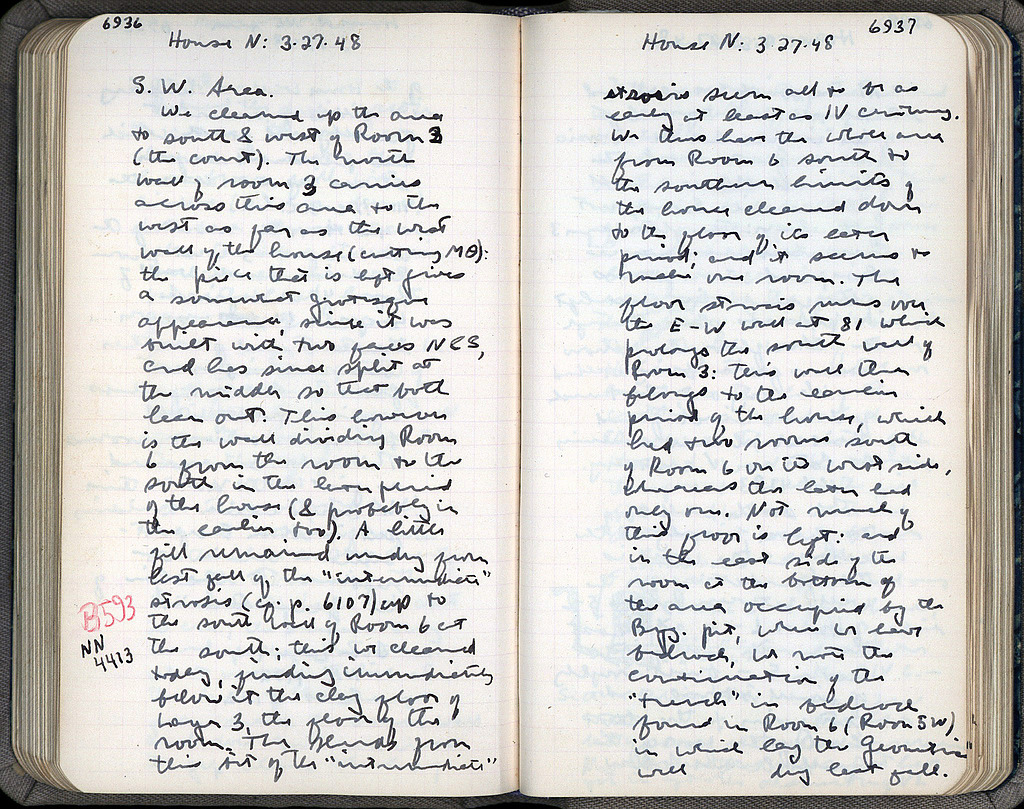 6936
House N: 3.27.48
S. W. Area.
We cleaned up the area
to south & west of Room 3
(the court). The north
wall of room 3 carries
across this area to the
west as far as the west
wall of the house (cutting ΜΘ):
the piece that is left gives
a somewhat grotesque
appearance, since it was
built with two faces N & S,
and has since split at
the middle so that both
lean out. This however
is the wall dividing Room
6 from the room to the
south in the later period
of the house (& probably in
the earlier too). A little
fill remained undug from
last fall of the "intermediate"
strosis (cf. p. 6107) up to
the south wall of Room 6 at
the south; this we cleaned
today, finding immediately
below it the clay floor of
Layer 3, the floor of the
room. The sherds from
this bit of the "intermediate"
B593
NN
4413
6937
House N: 3.27.48
strosis seem all to be as
early at least as IV century.
We thus have the whole area
from Room 6 south to
the southern limits of
the house cleaned down
to the floor of its later
period; and it seems to
make one room. The
floor strosis runs over
the E-W wall at 81 which
prolongs the south wall of
Room 3: this wall then
belongs to the earlier
period of the house, which
had two rooms south
of Room 6 on its west side,
whereas the later had
only one. Not much of
this floor is left: and
in the east side of the
room at the bottom of
the area occupied by the
Byz. pit, where we have
bedrock, we note the
continuation of the
"trench" in bedrock
found in Room 6 (Room 3 W)
in which lay the Geometric
well dug last fall.